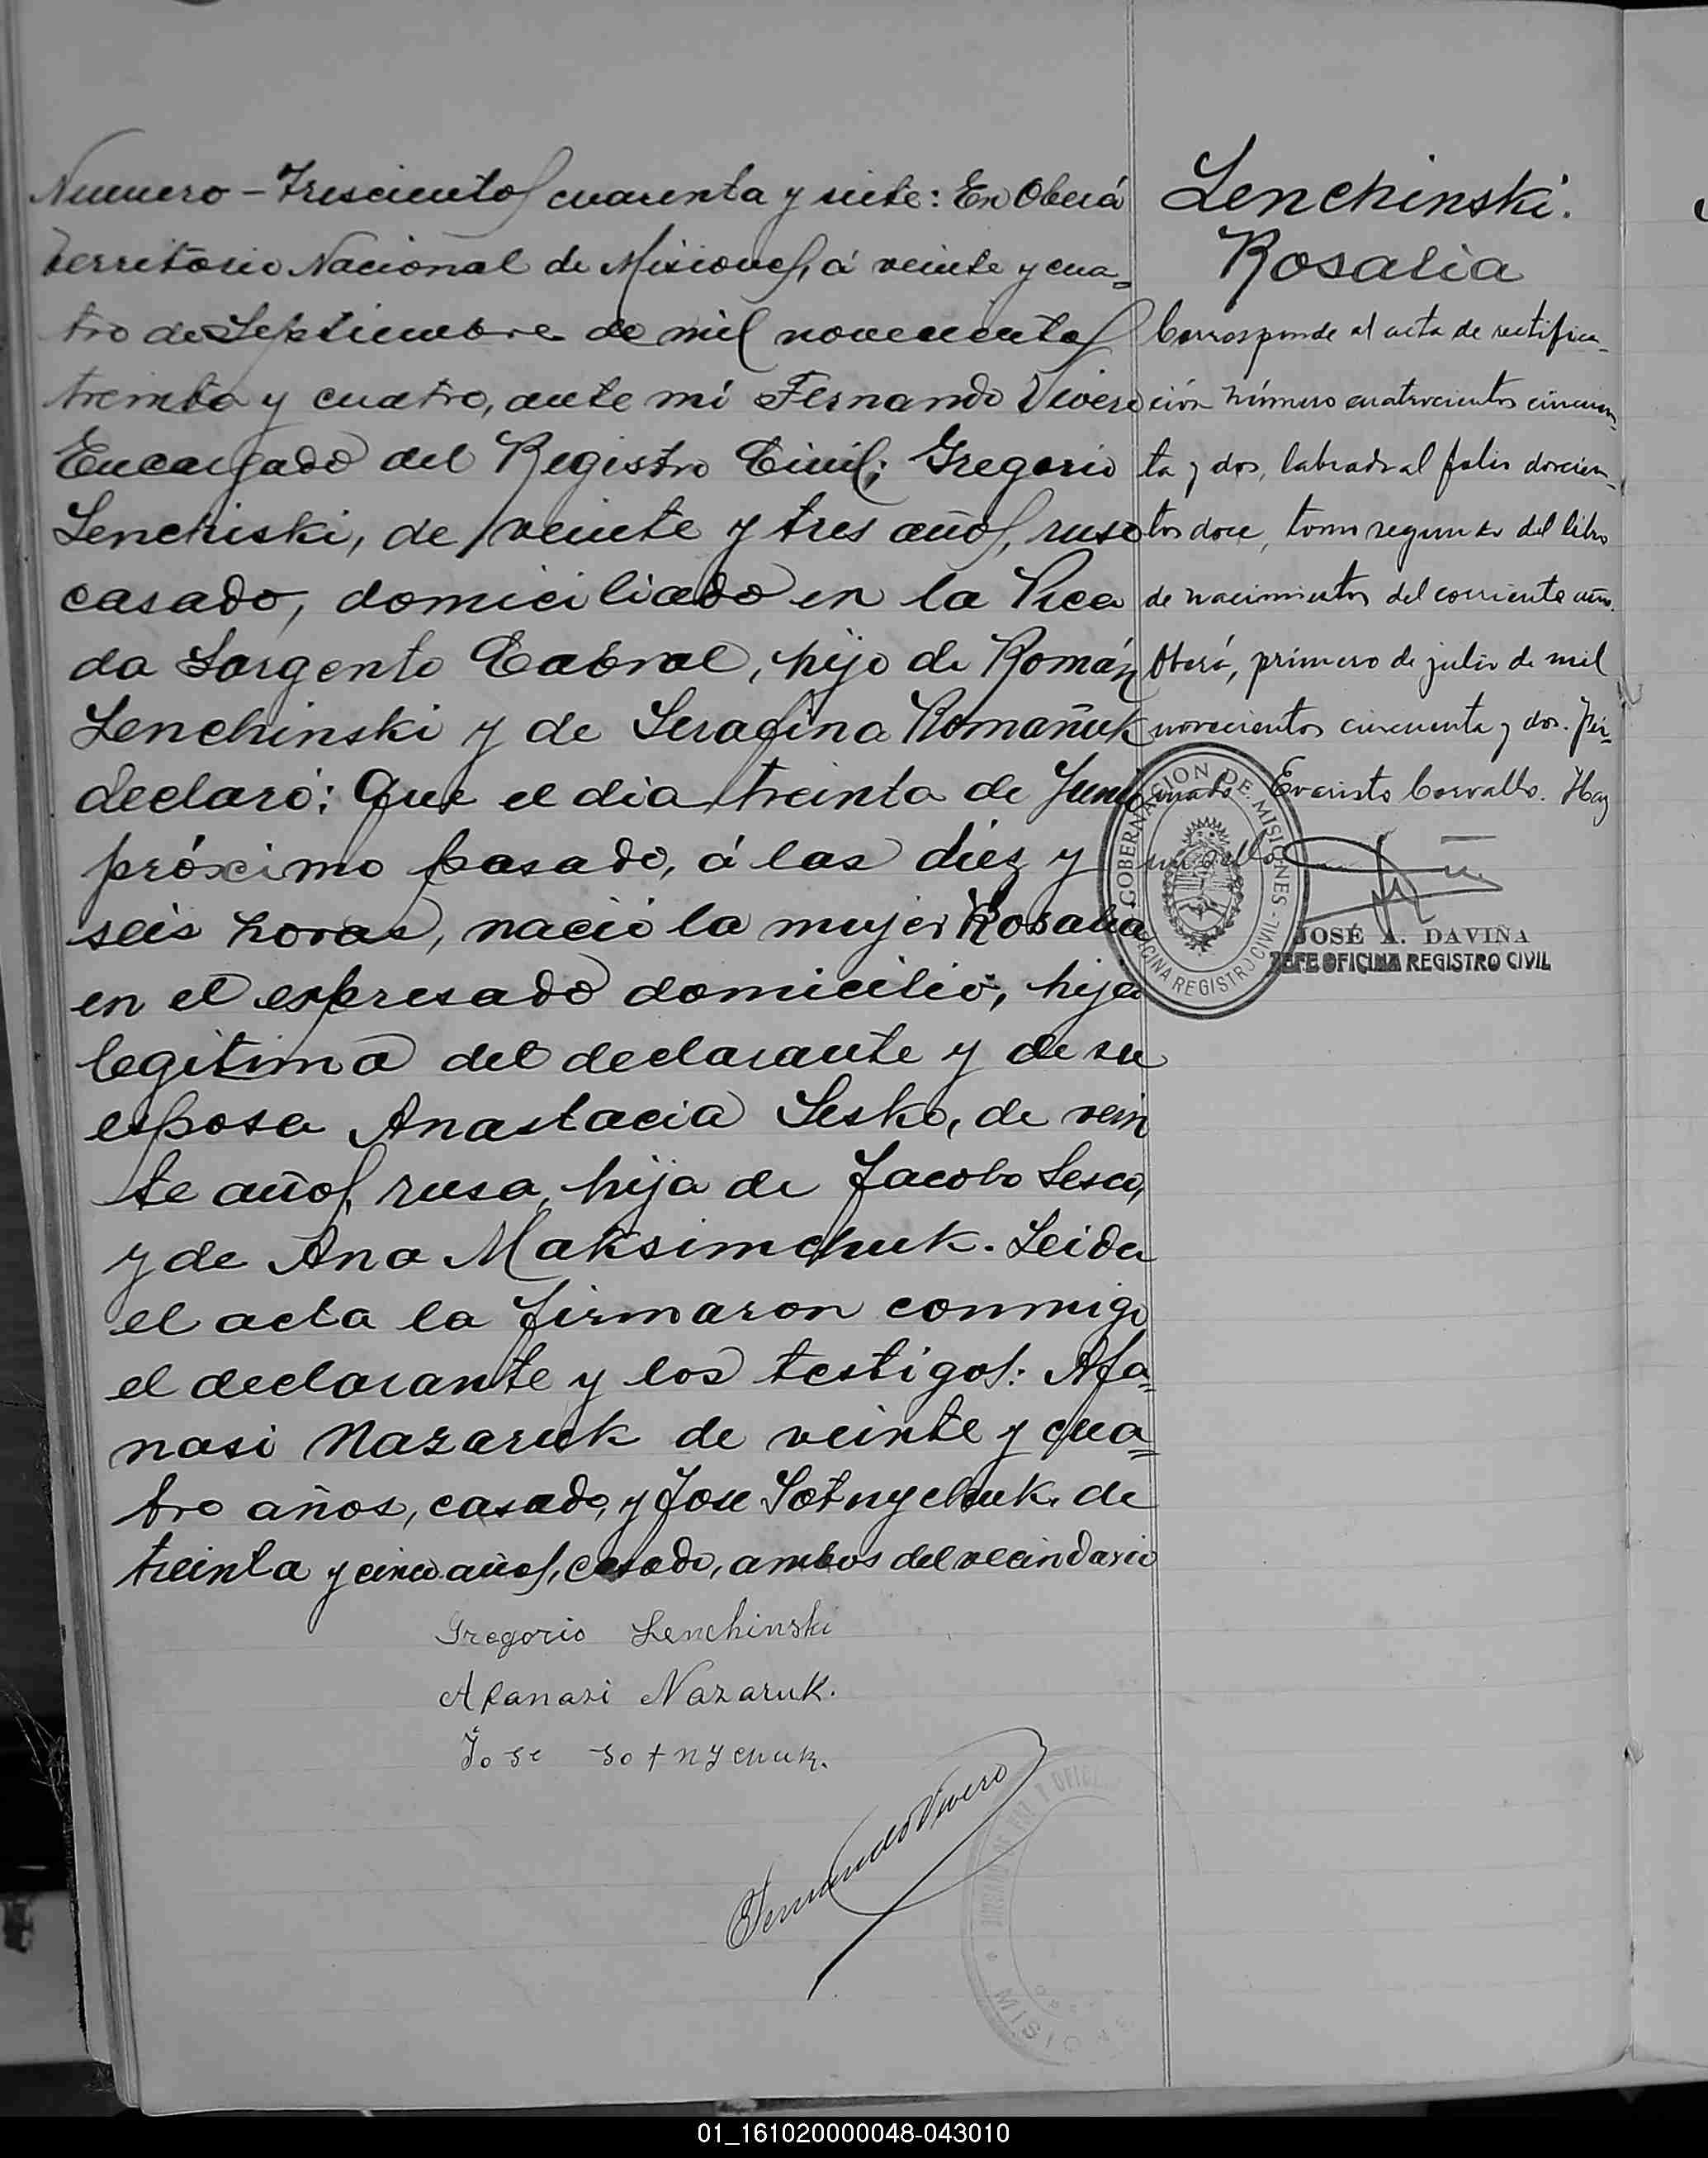 Numero - Trescientos cuarenta y siete: En Oberá
Territorio Nacional de Misiones, á veinte y cua=
tro de Septiembre de mil novecientos
treinta y cuatro, ante mi Fernando Vivero
Encargado del Registro Civil; Gregorio
Lenchiski, de veinte y tres años, ruso
casado, domiciliado en la Pica
da Sargento Cabral, hijo de Román
Lenchinski y de Serafina Romañuk
declaró: Que el dia treinta de Junio
próximo pasado, á las diez y
seis horas, nació la mujer Rosalia
en el expresado domicilio, hija
legitima del declarante y de su
esposa Anastacia Lesko, de vein
te años, rusa, hija de Jacobo Lesco,
y de Ana Maksimchuk. Leida
el acta la firmaron conmigo
el declarante y los testigos: Afa=
nasi Nazaruk de veinte y cua=
tro años, casado, y Jose Sotnychuk de
treinta y cinco años, casado, ambos del vecindario
Gregorio Lenchinski
Afanasi Nazaruk.
Jose Sotnychuk.
Fernando Vivero
Lenchinski.
Rosalia
Corresponde al acta de rectifica-
ción número cuatrocientos cincuen-
ta y dos, labrada al folio doscien-
tos doce, tomo segundo del libro
de nacimientos del corriente año.
Oberá, primero de julio de mil
novecientos cincuenta y dos. Fir-
mado Evaristo Corvallo. Hay
un sello
GOBERNACION DE MISIONES
OFICINA REGISTRO CIVIL
JOSÉ A. DAVIÑA
JEFE OFICINA REGISTRO CIVIL
MISIONES
01_161020000048-043010